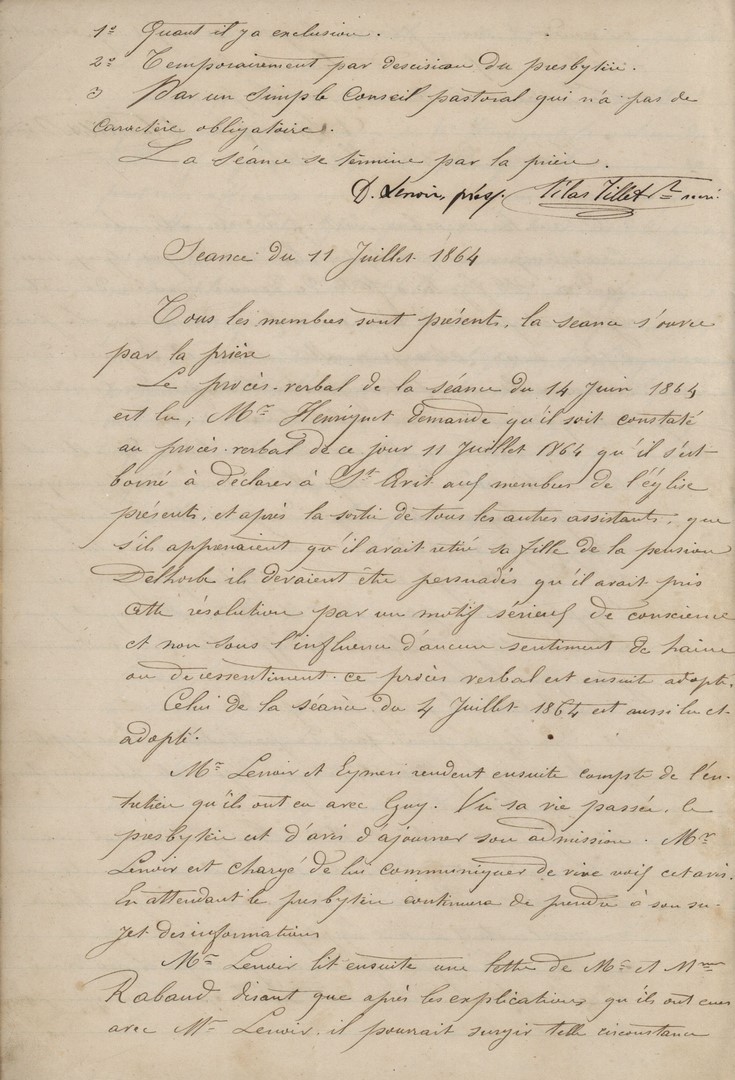 1º Quant il y a exclusion.
2º Temporairement par descision du presbytère.
3 Par un simple Conseil pastoral qui n'a pas de
caractère obligatoire.
La séance se termine par la prière.
D. Lenoir, prés. Silas Tillet
Seance du 11 Juillet 1864
Tous les membres sont présents, la seance s'ouvre
par la prière
Le procès-verbal de la séance du 14 Juin 1864
est lu; Mr Henriquet demande qu'il soit constaté
au procès-verbal de ce jour 11 Juillet 1864 qu'il s'est
borné à déclarer à St Avit aux membres de l'église
présents, et après la sortie de tous les autres assistants, que
s'ils apprenaient qu'il avait retiré sa fille de la pension
Delhorbe ils devaient être persuadés qu'il avait pris
cette résolution par un motif sérieux de conscience
et non sous l'influence d'aucun sentiment de haine
ou de ressentiment. ce procès verbal est ensuite adopté.
Celui de la séance du 4 Juillet 1864 est aussi lu et
adopté.
Mrs Lenoir et Eymeri rendent ensuite compte de l'en-
tretien qu'ils ont eu avec Guy. Vu sa vie passée, le
presbytère est d'avis d'ajourner son admission. Mr
Lenoir est chargé de lui communiquer de vive voix cet avis.
En attendant le presbytère continuera de prendre à son su-
jet des informations
Mr Lenoir lit ensuite une lettre de Mr et Mme
Rabaud disant que après les explications qu'ils ont eues
avec Mr Lenoir, il pourrait surgir telle circonstance